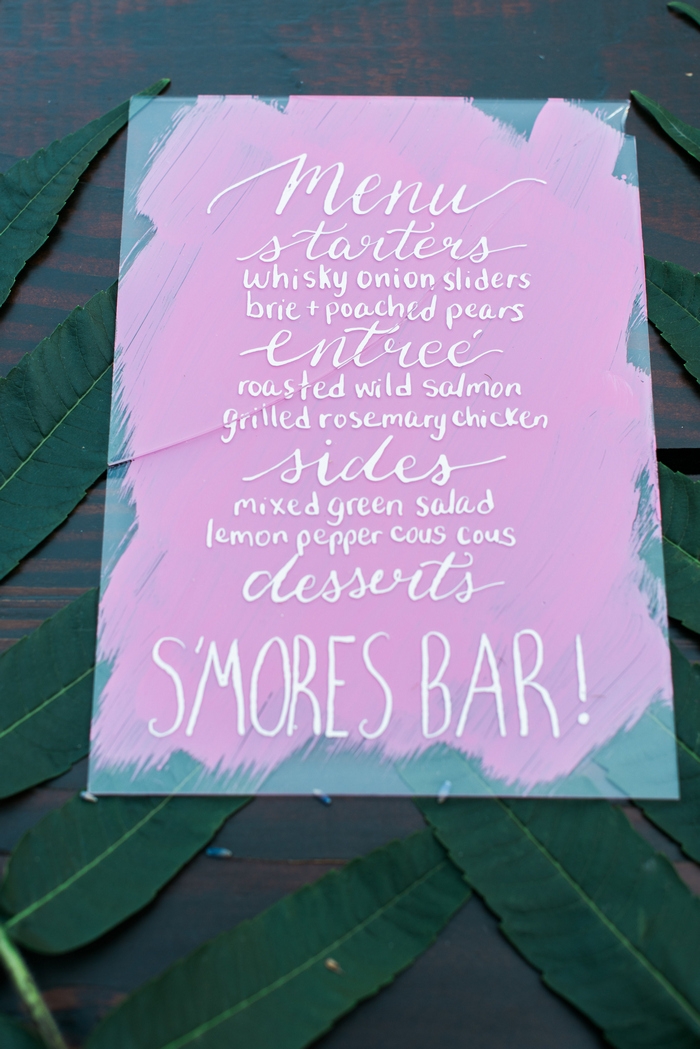 Menu
starters
whisky onion sliders
brie + poached pears
entreé
roasted wild salmon
grilled rosemary chicken
sides
mixed green salad
lemon pepper cous cous
desserts
S'MORES BAR!